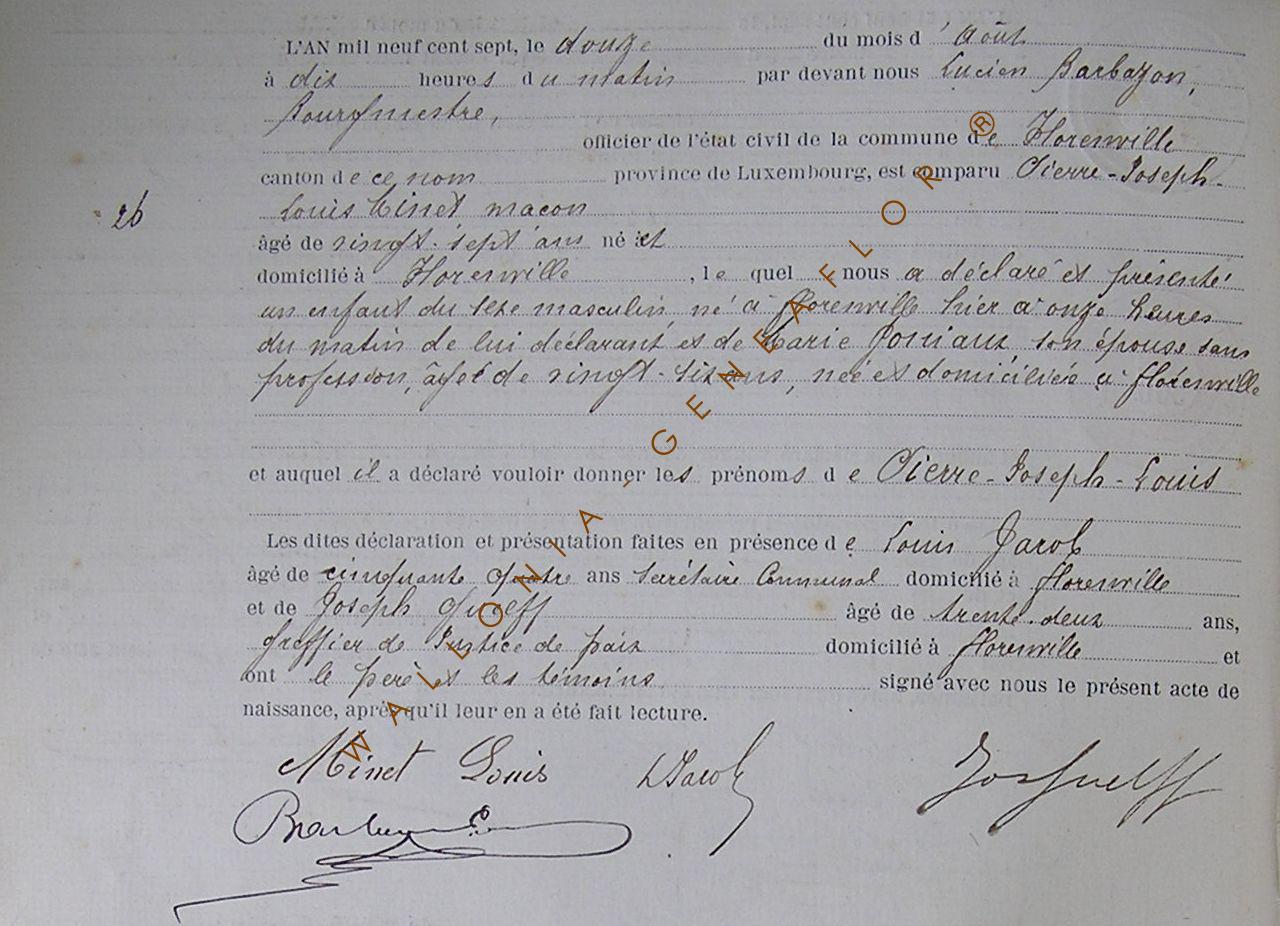 L'AN mil neuf cent sept, le douze du mois d'Août
à dix heures du matin par devant nous Lucien Barbazon,
Bourgmestre,
officier de l'état civil de la commune de Florenville
canton de ce nom province de Luxembourg, est comparu Pierre-Joseph-
26
Louis Minet maçon
âgé de vingt-sept ans né et
domicilié à Florenville, lequel nous a déclaré et présenté
un enfant du sexe masculin né à Florenville hier à onze heures
du matin de lui déclarant et de Marie son épouse sans
profession, âgée de vingt-six ans, née et domiciliée à Florenville
et auquel il a déclaré vouloir donner les prénoms de Pierre-Joseph-Louis
Les dites déclaration et présentation faites en présence de Louis Jacob
âgé de cinquante quatre ans Secrétaire Communal domicilié à Florenville
et de Joseph âgé de trente-deux ans,
greffier de Justice de paix domicilié à Florenville et
ont le père et les témoins signé avec nous le présent acte de
naissance, après qu'il leur en a été fait lecture.
Minet Louis L Jacob
WALLONIA - GENEAFLOR ®